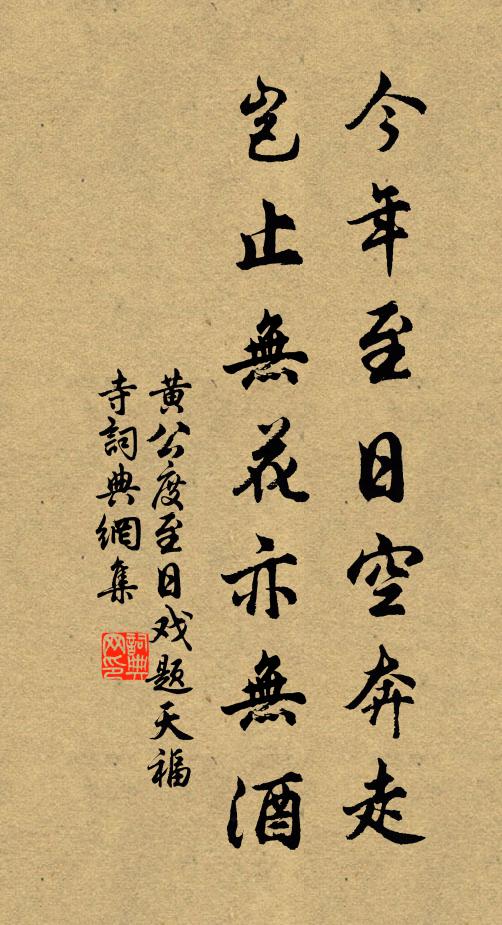 今年至日空奔走
豈止無花亦無酒
黄公度至日戏题天福
寺詞典網集
詞典网印